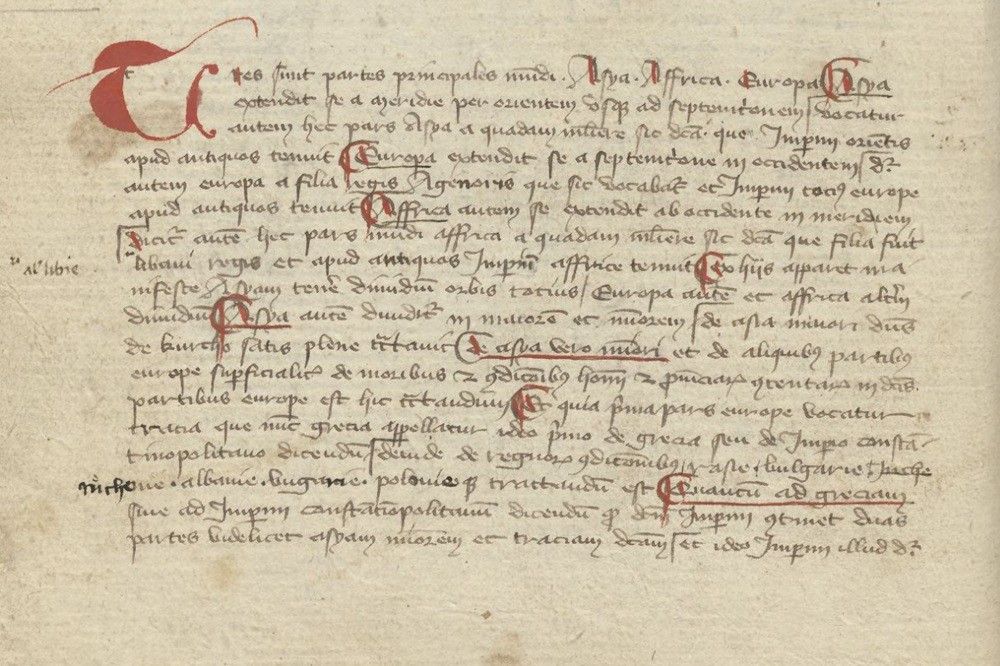 Tres sunt partes principales mundi. Asya. Affrica. Europa Asya
extendit se a meridie per orientem vsque ad septemtrionem vocatur
autem hec pars Asya a quadam muliere sic dicta. que Imperium orientis
apud antiquos tenuit Europa extendit se a septemtrione in occidentem dicitur
autem europa a filia regis Agenoris que sic vocabatur et Imperium tocius europe
apud antiquos tenuit Affrica autem se extendit ab occidente in meridiem
dicitur autem hec pars mundi affrica a quadam muliere sic dicta que filia fuit
al' libie
libani regis et apud antiquos Imperium affrice tenuit Ex hijs apparet ma
nifeste Asyam tenere dimidium orbis tocius Europa autem et affrica alterum
dimidium Asya autem diuiditur in maiorem et minorem de asia minori dominus
de kurcho satis plene tractauit de asya vero minori et de aliquibus partibus
europe superficialiter de moribus et condicionibus hominum et prouinciarum contentarum in dictis
partibus europe est hic tractandum Et quia prima pars europe vocatur
tracia que nunc grecia appellatur ideo primo de grecia seu de Imperio constan-
tinopolitano dicendum deinde de regnorum condicionibus rasie bulgarie
one. albanie. vngarie. polonie que tractandum est Quantum ad greciam
siue ad Imperium constantinopolitanum dicendum quod dictum Imperium continet duas
partes videlicet asyam minorem et traciam dictam et ideo Imperium illud dicitur